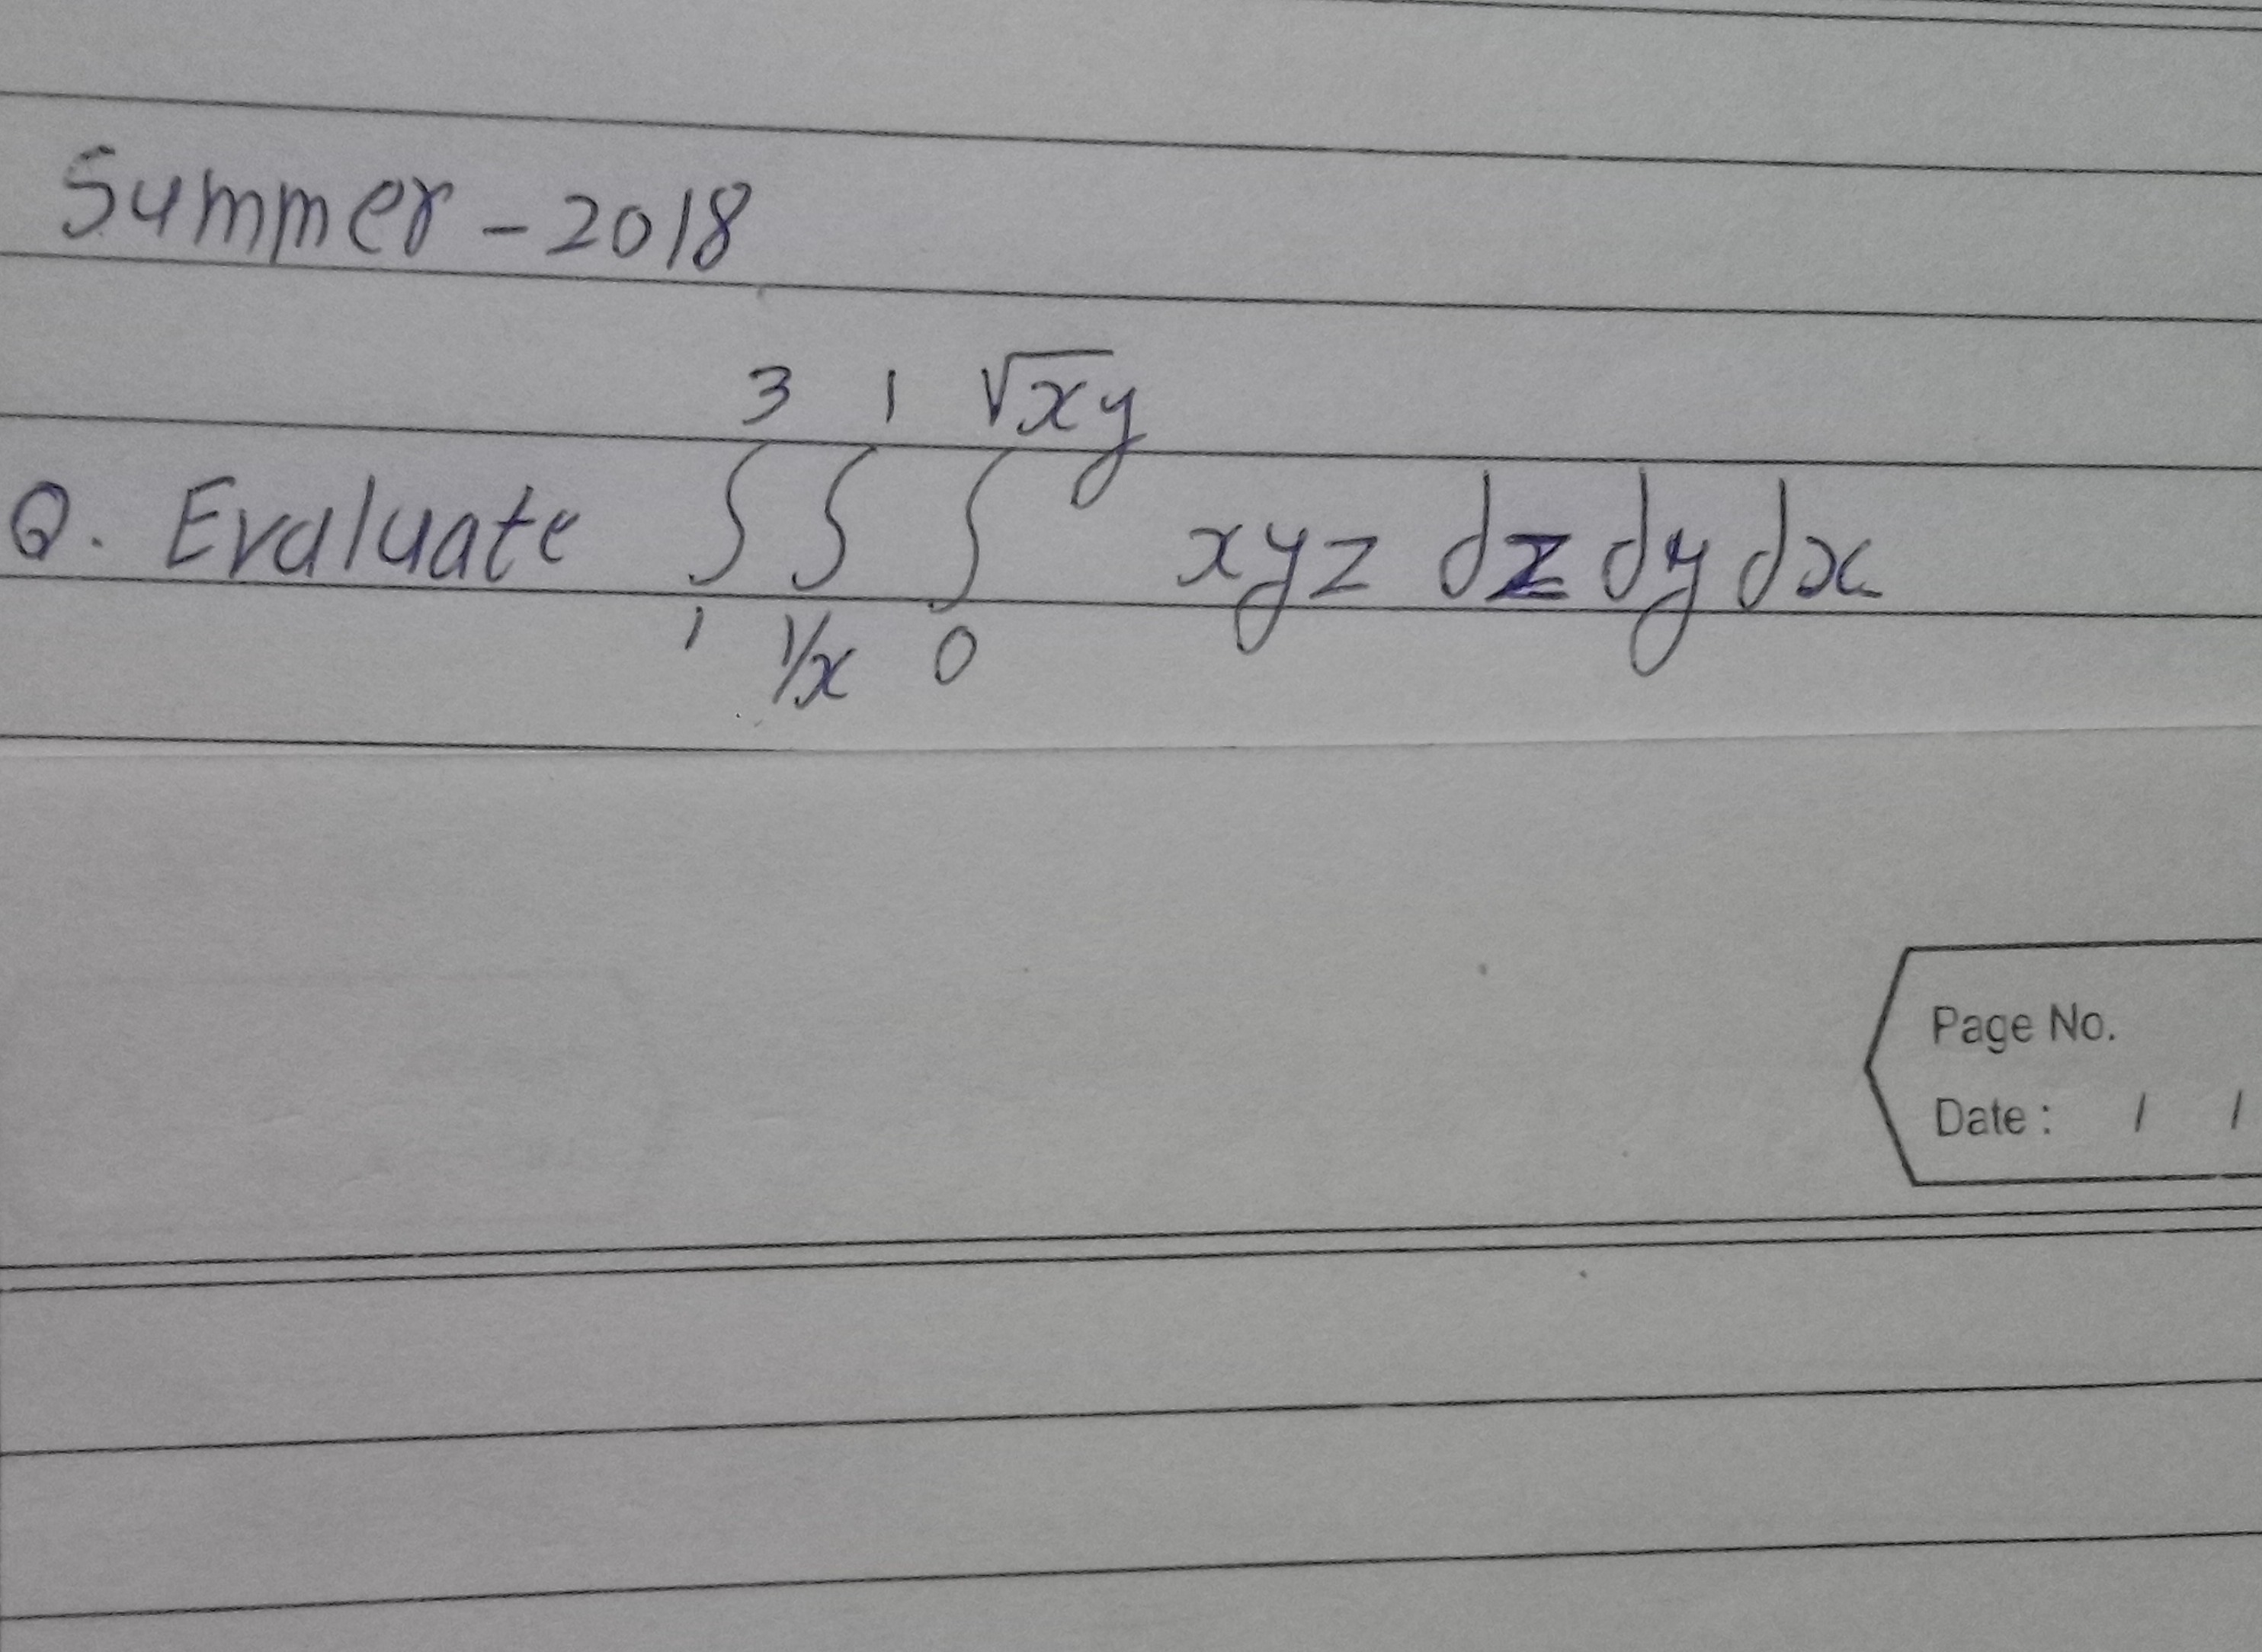 Summer - 2018
3 1 √xy
Q. Evaluate ∫ ∫ ∫ xyz dz dy dx
1 1/x 0
Page No.
Date : / /